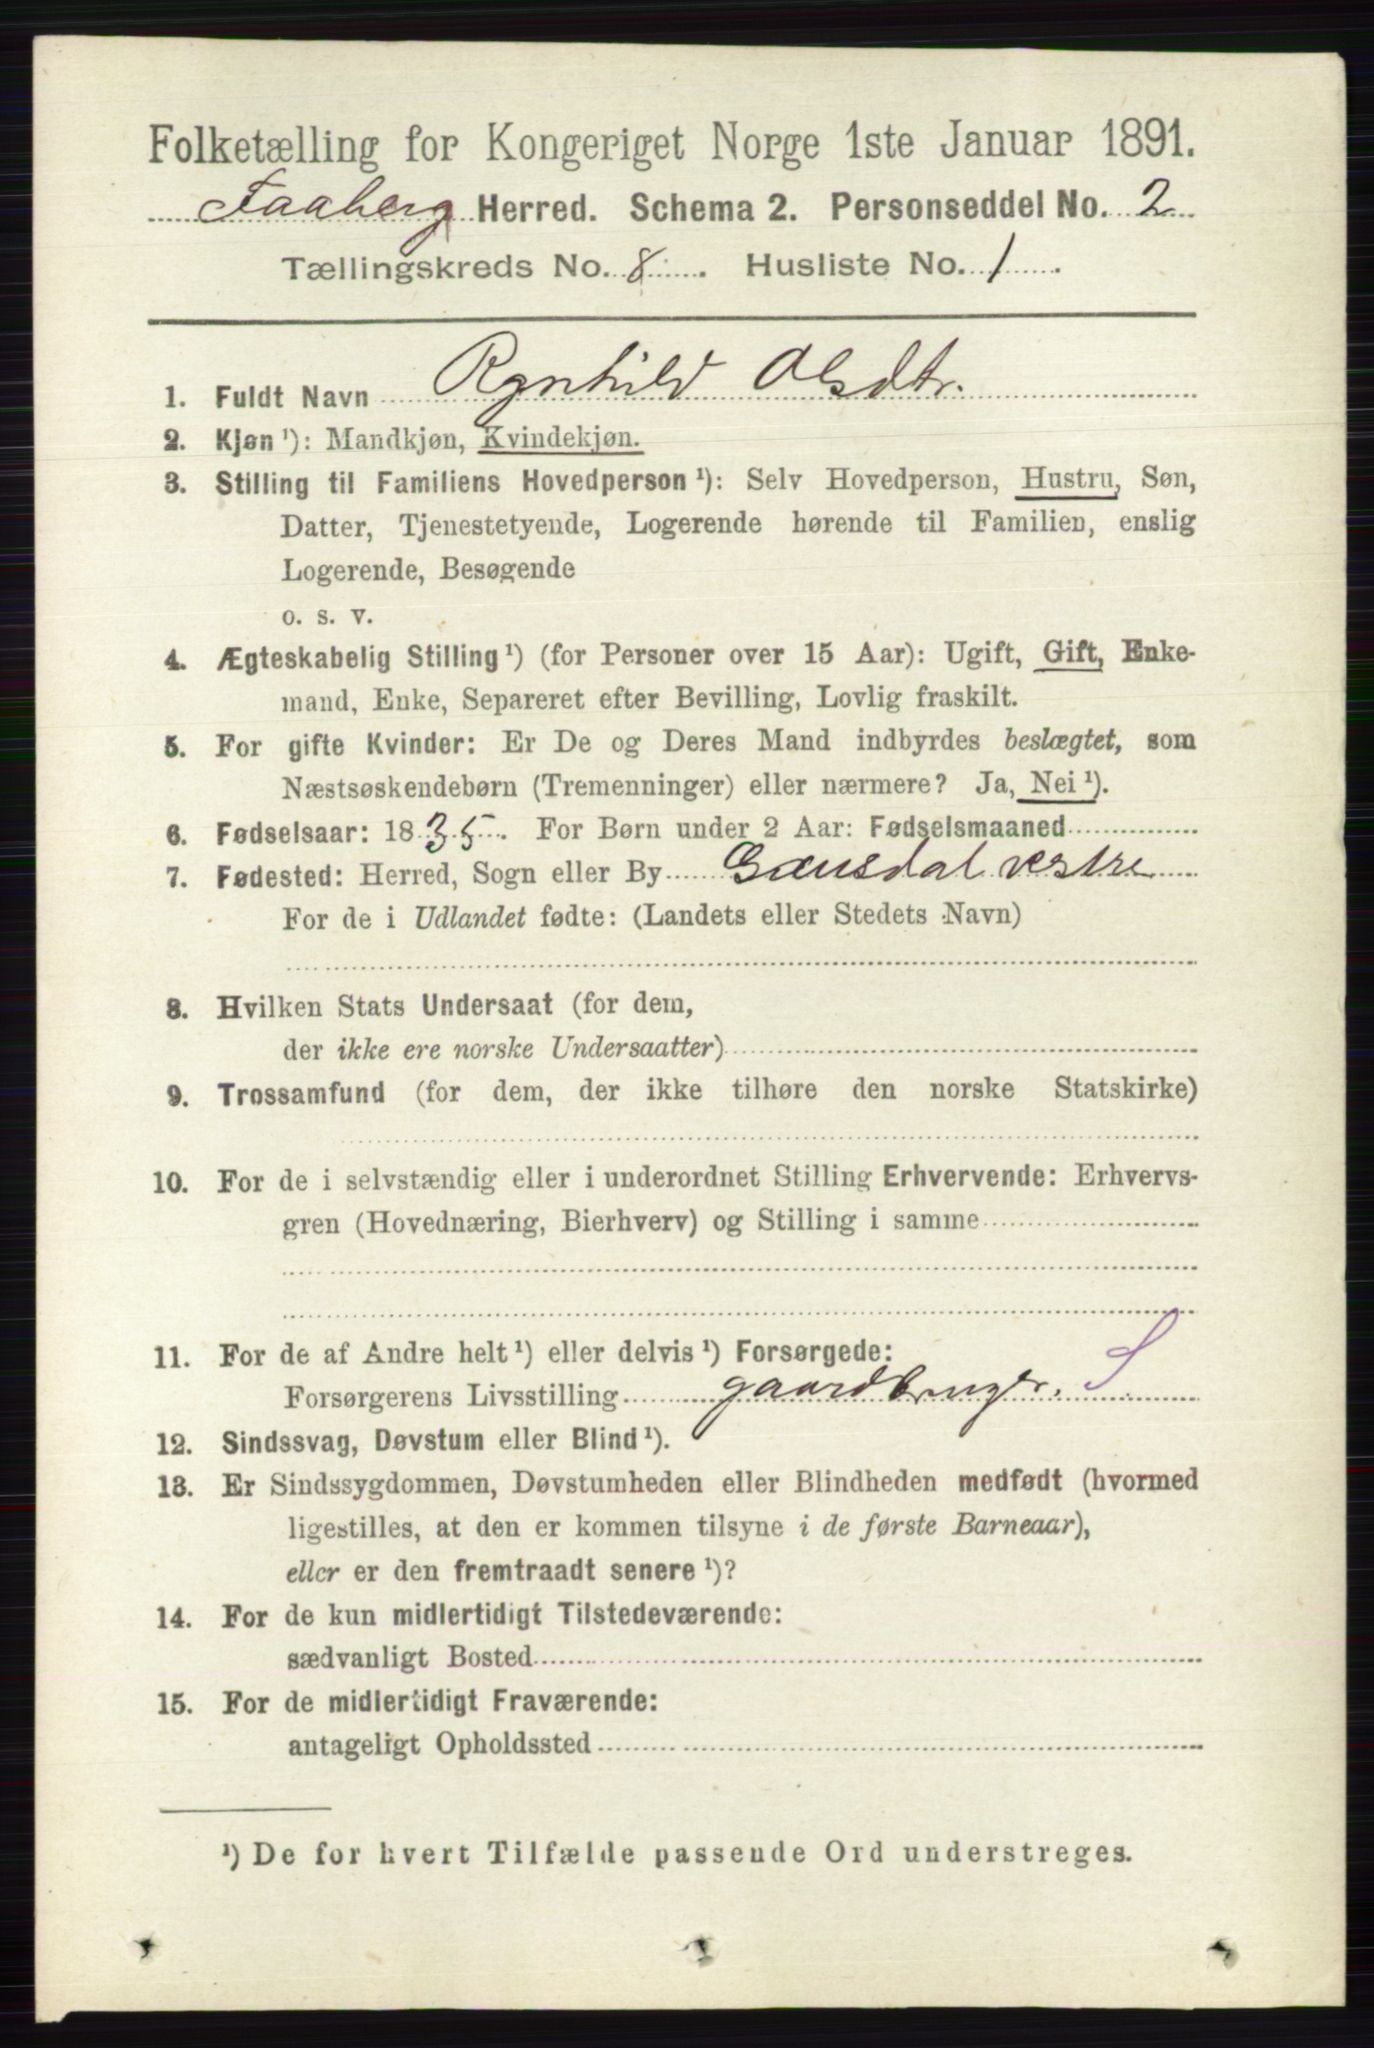 Folketælling for Kongeriget Norge 1ste Januar 1891.
Faaberg Herred. Schema 2. Personseddel No. 2
Tællingskreds No. 8. Husliste No. 1.
1. Fuldt Navn Rgnhild Olsdtr.
2. Kjøn ¹): Mandkjøn, Kvindekjøn.
3. Stilling til Familiens Hovedperson ¹): Selv Hovedperson, Hustru, Søn,
Datter, Tjenestetyende, Logerende hørende til Familien, enslig
Logerende, Besøgende
o. s. v.
4. Ægteskabelig Stilling ¹) (for Personer over 15 Aar): Ugift, Gift, Enke-
mand, Enke, Separeret efter Bevilling, Lovlig fraskilt.
5. For gifte Kvinder: Er De og Deres Mand indbyrdes beslægtet, som
Næstsøskendebørn (Tremenninger) eller nærmere? Ja, Nei ¹).
6. Fødselsaar: 1835. For Børn under 2 Aar: Fødselsmaaned
7. Fødested: Herred, Sogn eller By Gausdal vestre
For de i Udlandet fødte: (Landets eller Stedets Navn)
8. Hvilken Stats Undersaat (for dem,
der ikke ere norske Undersaatter)
9. Trossamfund (for dem, der ikke tilhøre den norske Statskirke)
10. For de i selvstændig eller i underordnet Stilling Erhvervende: Erhvervs-
gren (Hovednæring, Bierhverv) og Stilling i samme
11. For de af Andre helt ¹) eller delvis ¹) Forsørgede:
Forsørgerens Livsstilling gaardbruger. S
12. Sindssvag, Døvstum eller Blind ¹).
13. Er Sindssygdommen, Døvstumheden eller Blindheden medfødt (hvormed
ligestilles, at den er kommen tilsyne i de første Barneaar),
eller er den fremtraadt senere ¹)?
14. For de kun midlertidigt Tilstedeværende:
sædvanligt Bosted
15. For de midlertidigt Fraværende:
antageligt Opholdssted
¹) De for hvert Tilfælde passende Ord understreges.